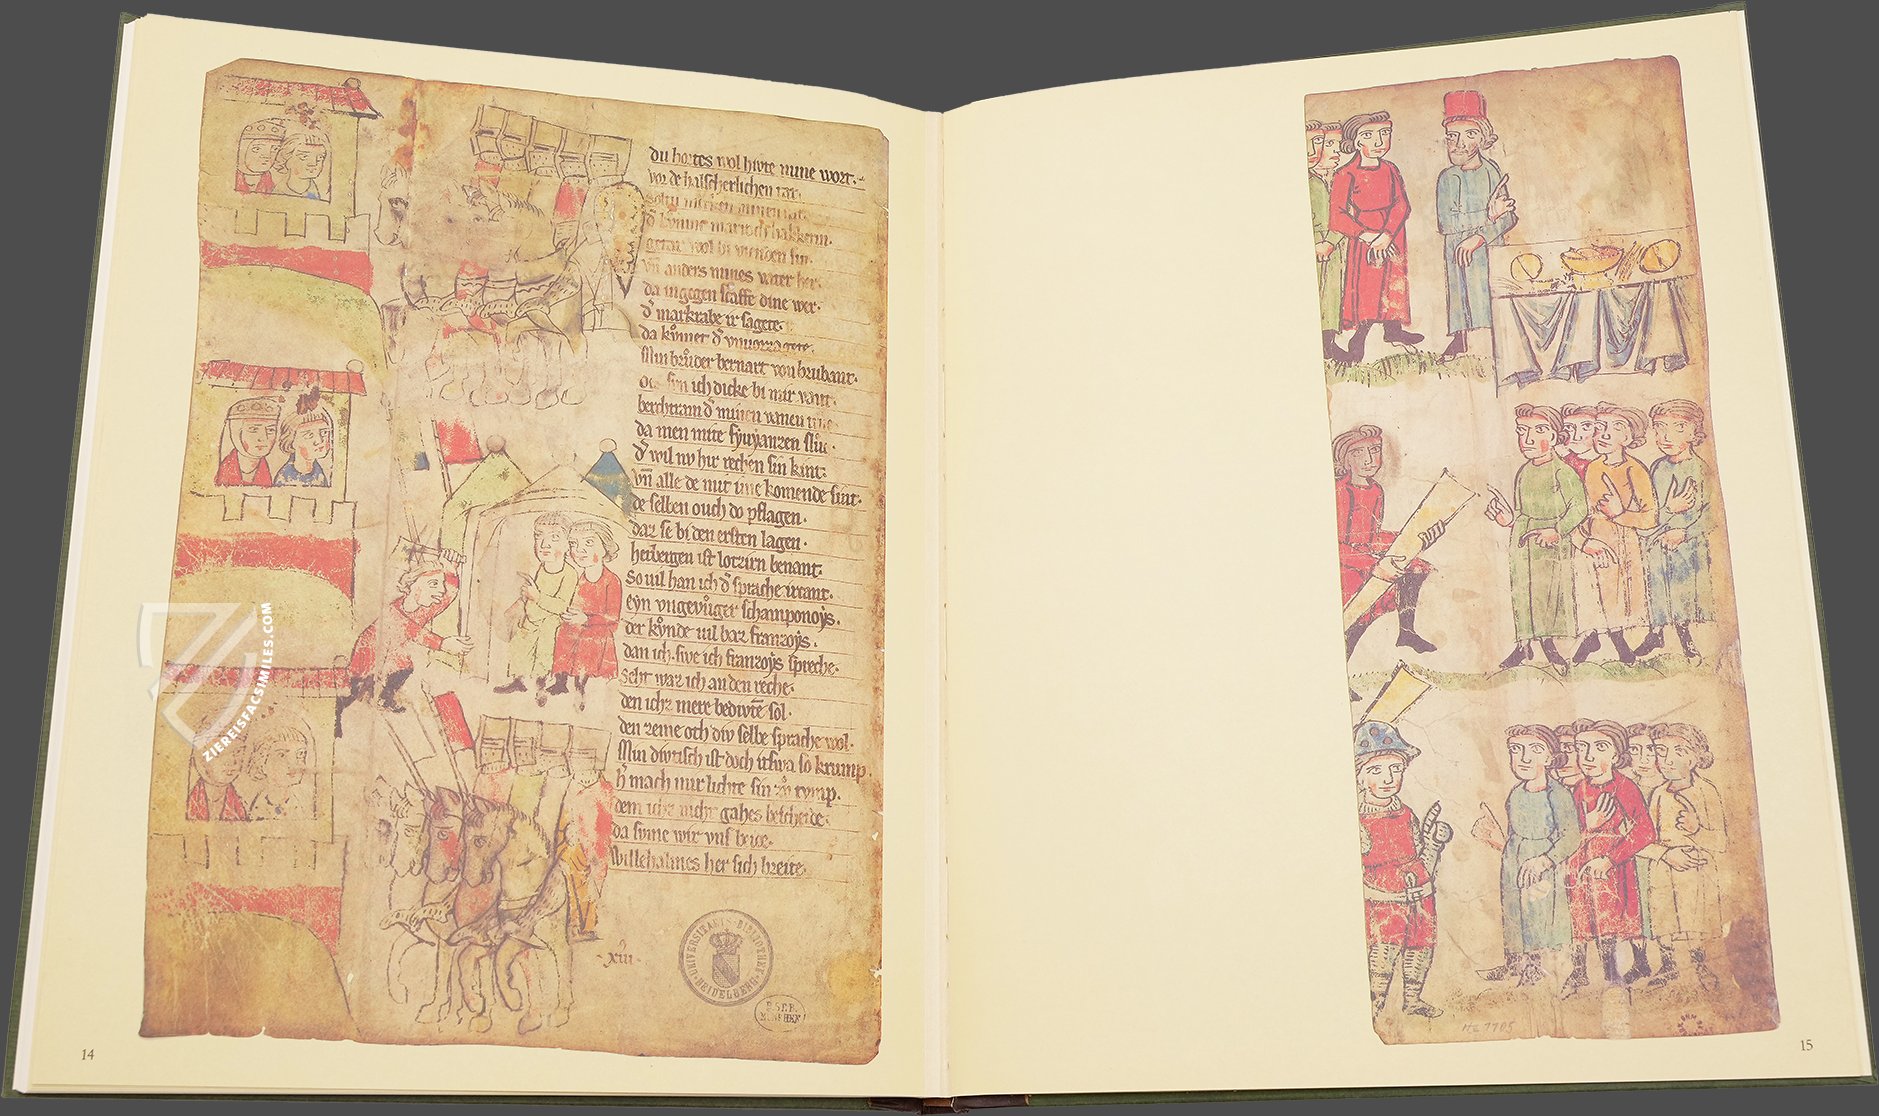 du hortes wol hivte mine wort.
vor de halscherlichen tat.
gerat wol bi vrevden sin.
vñ anders mines vater her.
da ingegen scaffe dine wer.
d̄ markrabe ir sagete.
da kvͦmet d̄ vnuorzagete.
Min brvͦder bernart von brubant.
berchtram d̄ minen vanen
da men mite
d̄ wil nv hir rechen sin kint.
vñ alle de mit ime komende sint.
de selben ouch do pflagen.
dar se bi den ersten lagen.
herbergen ist lotzirn benant.
So uil han ich d̄ sprache irkant.
eyn vngevuͦger schamponoẏs.
der kvͦnde uil baz franzoẏs.
dan ich. swe ich franzoẏs spreche.
seht waz ich an den reche.
den ichz mere bedivtē sol.
den zeme och div selbe sprache wol.
Min divtisch ist doch itswa so krump.
h̄ mach mir lichte sin zvͦ tvmp.
dem ichz nicht gahes bescheide.
da svme wir vns beide.
Willehalmes her sich breite.
·xiii·
UNIVERSITAETS-BIBLIOTHEK HEIDELBERG
B.ST.B. MÜNCHEN
ZIEREISFACSIMILES.COM
14
Hz 1105
15